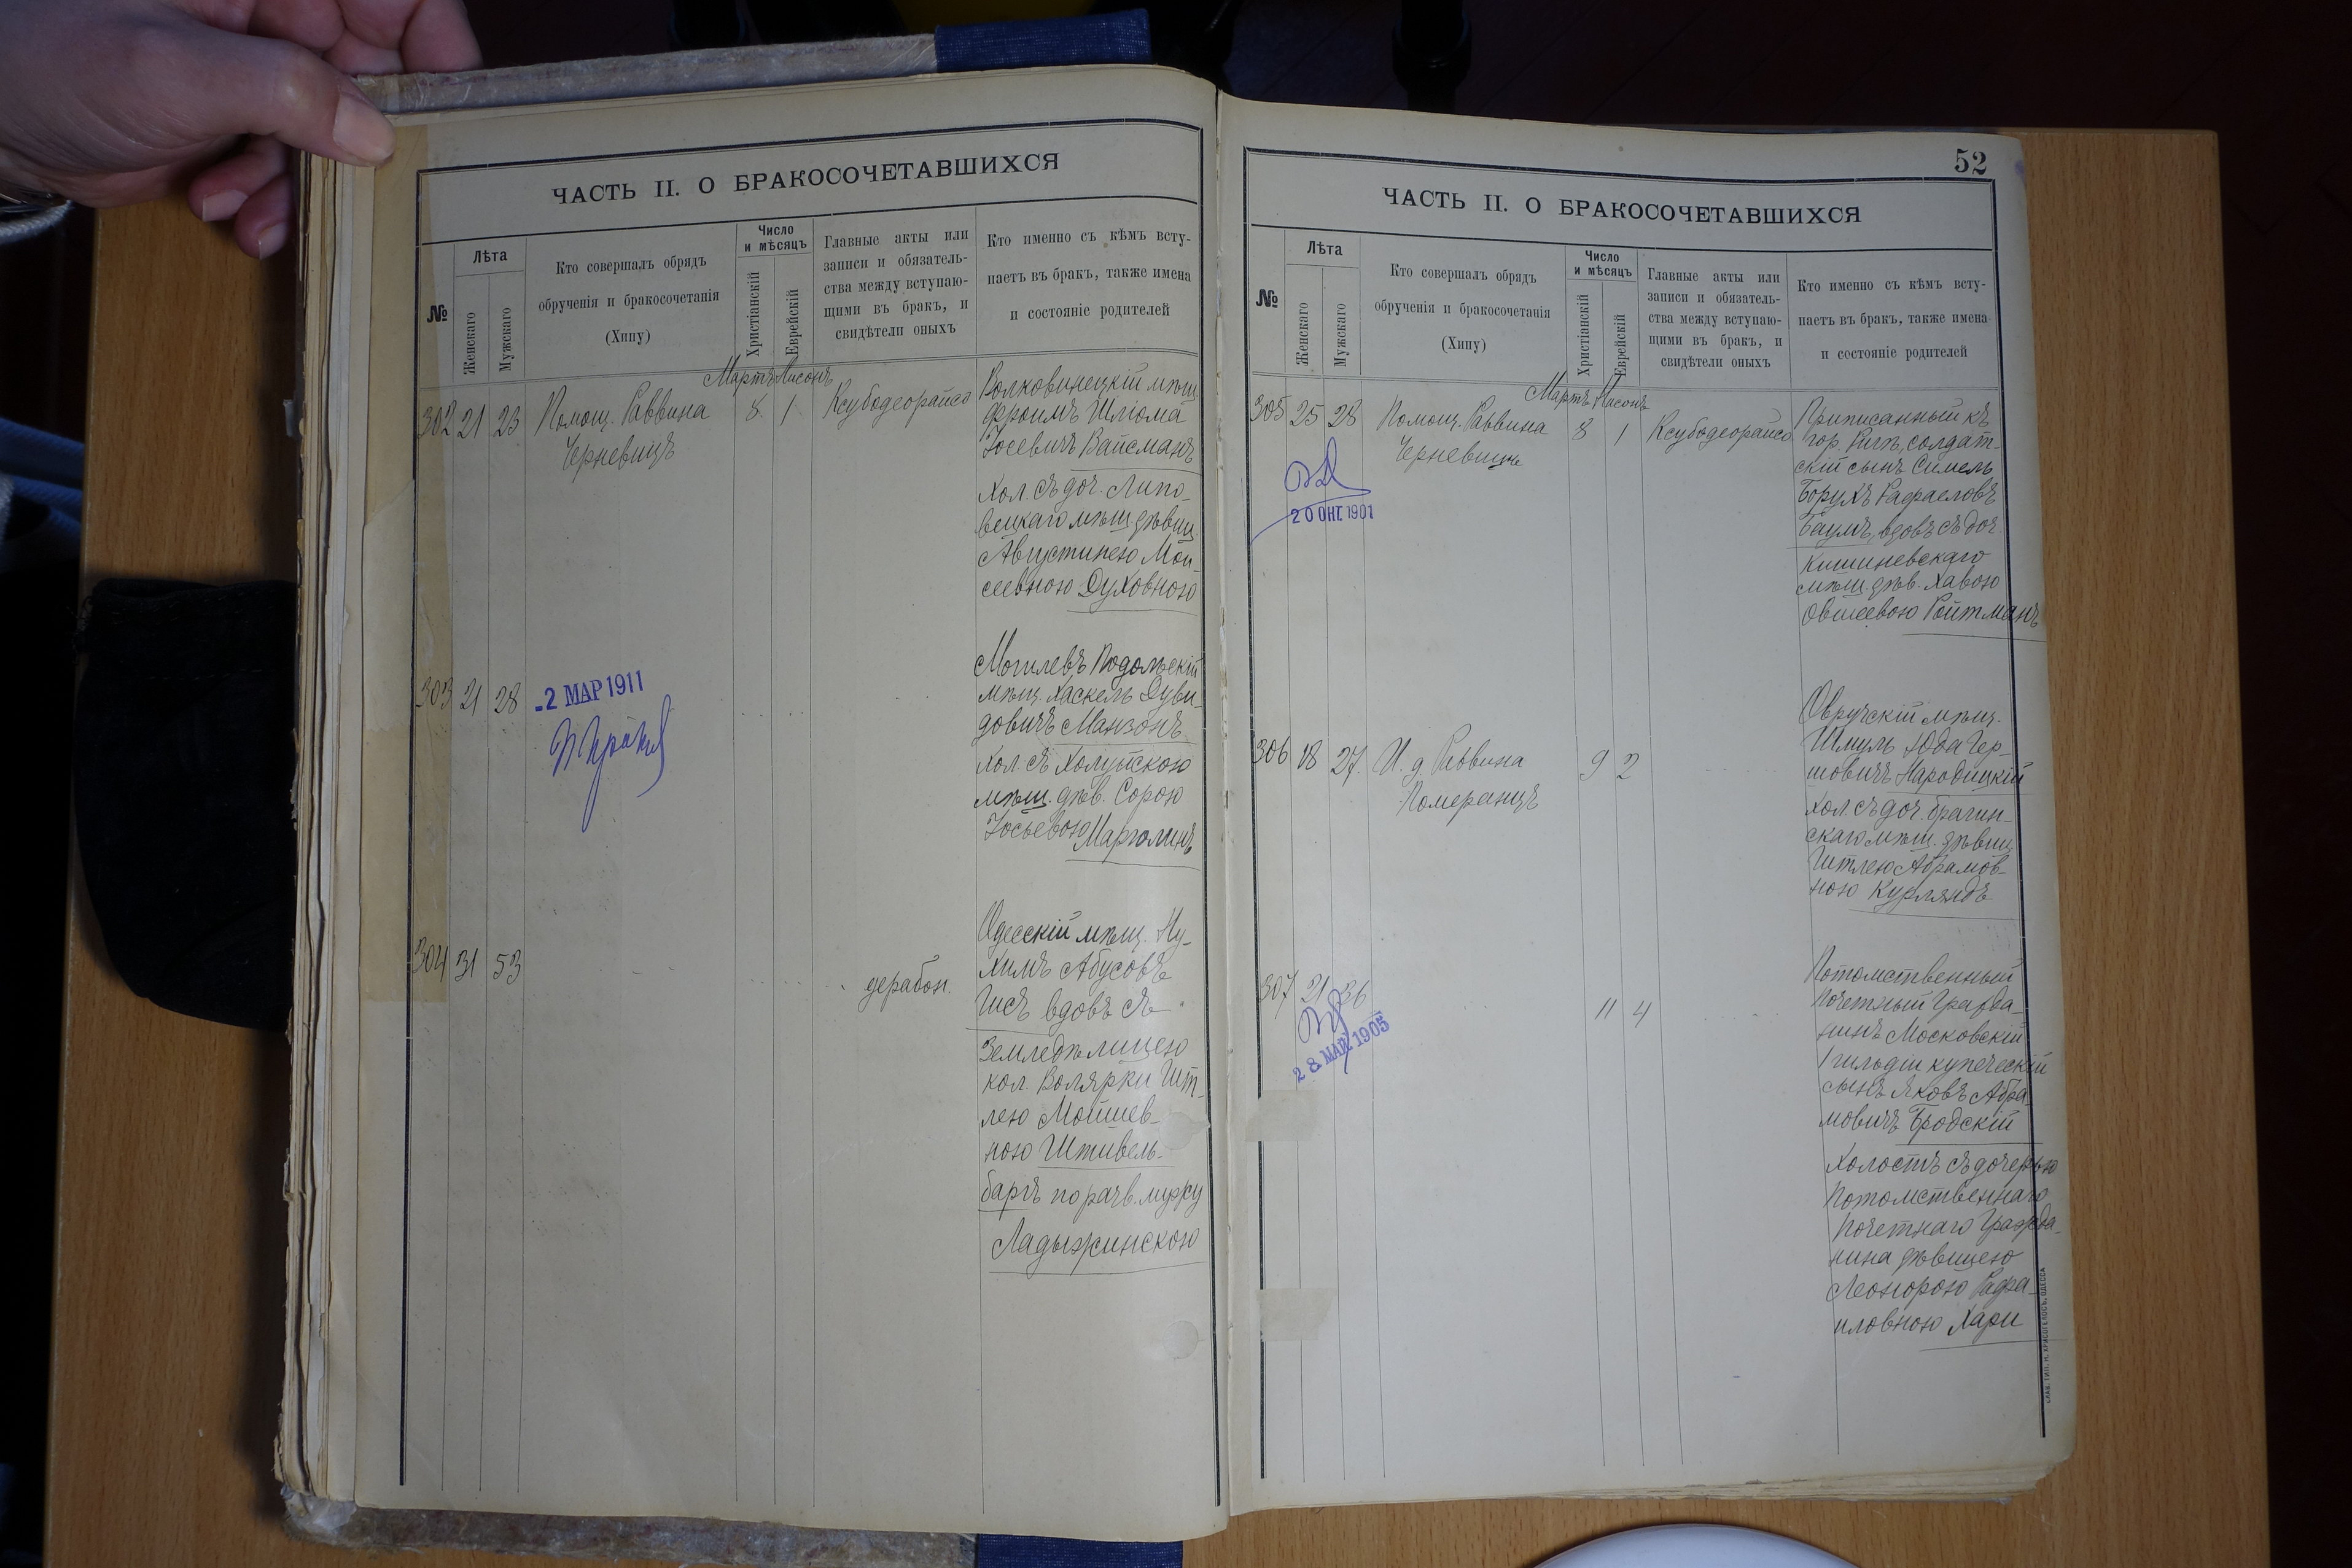 ЧАСТЬ II. О БРАКОСОЧЕТАВШИХСЯ
№
Лѣта
Женскаго
Мужскаго
Кто совершалъ обрядъ
обрученія и бракосочетанія
(Хипу)
Число
и мѣсяцъ
Христіанскій
Еврейскій
Главные акты или
записи и обязатель-
ства между вступаю-
щими въ бракъ, и
свидѣтели оныхъ
Кто именно съ кѣмъ всту-
паетъ въ бракъ, также имена
и состояніе родителей
Мартъ Нисонъ
302 21 23 Помощ. Раввина 8. 1 Ксубодеорайсо
Черневицъ
Волковинецкій мѣщ.
Фроимъ Шліома
Іосевичъ Вайсманъ
хол. съ доч. Липо-
вецкаго мѣщ. дѣвиц.
Августинею Мои-
сеевною Духовною
303 21 28
-2 МАР 1911
Могилевъ Подольскій
мѣщ. Хаскель Дуви-
довичъ Манзонъ
хол. съ Холуйскою
мѣщ. дѣв. Сорою
Іосьевою Марголинъ
304 31 53 дерабон.
Одесскій мѣщ. Ну-
химъ Абусовъ
Гисъ вдовъ съ
Земледѣлицею
кол. Волярки Ит-
лею Мойшев-
ною Штивель-
баргъ по разв. мужу
Ладыжинскою
52
ЧАСТЬ II. О БРАКОСОЧЕТАВШИХСЯ
№
Лѣта
Женскаго
Мужскаго
Кто совершалъ обрядъ
обрученія и бракосочетанія
(Хипу)
Число
и мѣсяцъ
Христіанскій
Еврейскій
Главные акты или
записи и обязатель-
ства между вступаю-
щими въ бракъ, и
свидѣтели оныхъ
Кто именно съ кѣмъ всту-
паетъ въ бракъ, также имена
и состояніе родителей
Мартъ Нисонъ
305 25 28 Помощ. Раввина 8 1 Ксубодеорайсо
Черневицъ
20 ОКТ. 1901
Приписанный къ
гор. Ригѣ, солдат-
скій сынъ Симель
Борухъ Рафаеловъ
Баумъ, вдовъ съ доч.
Кишиневскаго
мѣщ. дѣв. Хавою
Овшеевою Ройтманъ
306 18 27. И. д. Раввина 9 2
Померанцъ
Овручскій мѣщ.
Шмуль Юда Гер-
шовичъ Народицкій
хол. съ доч. Брагин-
скаго мѣщ. дѣвиц.
Итлею Абрамов-
ною Курляндъ
307 21 36 11 4
28 МАР. 1905
Потомственный
Почетный Гражда-
нинъ Московскій
1 гильдіи купеческій
сынъ Яковъ Абра-
мовичъ Бродскій
холостъ съ дочерью
Потомственнаго
Почетнаго Гражда-
нина дѣвицею
Леонорою Рафа-
иловною Хари